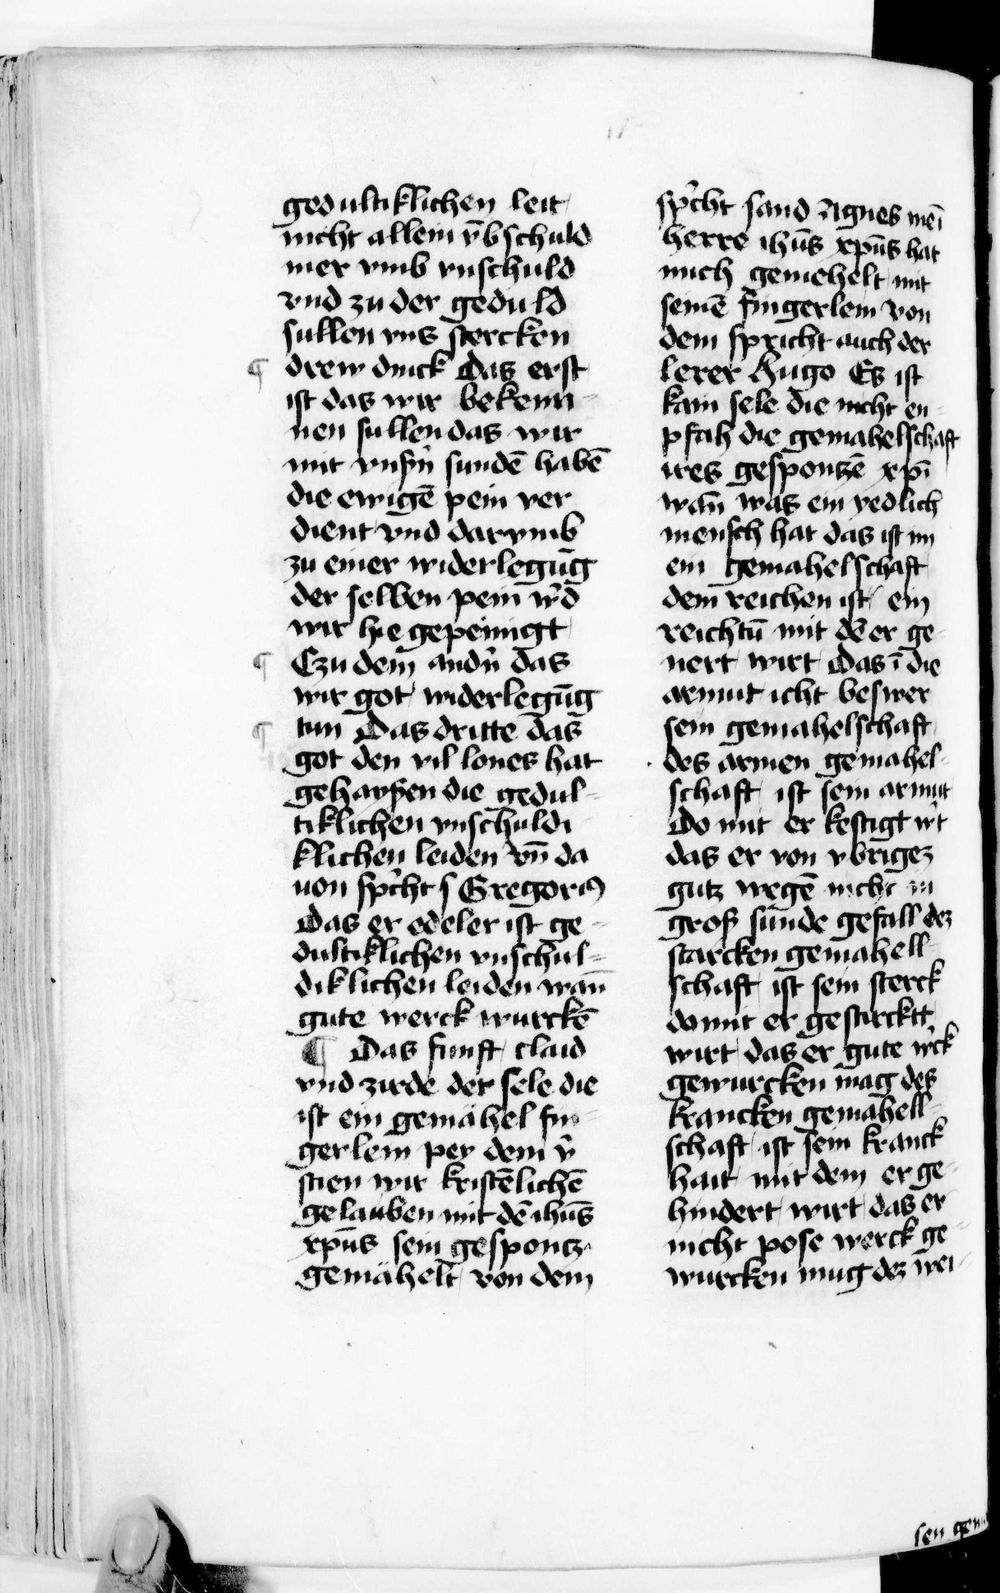 gedultiklichen leit
nicht allein v̄b schuld
mer vmb vnschuld
vnd zu der geduld
sullen vns stercken
¶ drew dinck Das erst
ist das wir bekenn-
nen sullen das wir
mit vnsn̄ sundē habē
die ewigē pein ver
dient vnd darvmb
zu einer widerlegūg
der selben pein w̄d
wir hie gepeinigt
¶ Czu dem andn̄ das
wir got widerlegūg
¶ tun Das dritte das
got den vil lones hat
gehaysen die gedul-
tiklichen vnschuldi
klichen leiden vn̄ da
uon sp̄cht s Gregorꝰ
Das er edeler ist ge-
dultiklichen vnschul-
diklichen leiden wan̄
gute werck wurckē
¶ Das funft claid
vnd zirde der sele die
ist ein gemähel fin-
gerlein per dem v̄
stien wir kristēlichē
gelauben mit dē ihūs
xpūs sein gespontz
gemähelt von dem
sp̄cht sand Agnes mei̅
herre ihūs xpūs hat
mich gemehelt mit
seinē fingerlein von
dem spricht auch der
lerer Hugo Es ist
kain sele die nicht en-
pfah die gemahelschaft
ires gespontzē xpi̅
wan̄ was ein yedlich
mensch hat das ist im
ein gemahelschaft
dem reichen ist ein
reichtū mit dē er ge-
nert wirt Das i̅ die
armut icht beswer
sein gemahelschaft
des armen gemahel-
schaft ist sein armut
Do mit er kestigt w̄t
das er von vbrigez
gutz wegē nicht in
groß sunde gefall dez
starcken gemahell-
schaft ist sein sterck
domit er gestircktt
wirt das er gute w̄ck
gewurcken mag des
krancken gemahell-
schaft ist sein kranck
hait mit dem er ge-
hindert wirt das er
nicht pose werck ge-
wurcken mug dez wei-
sen gem